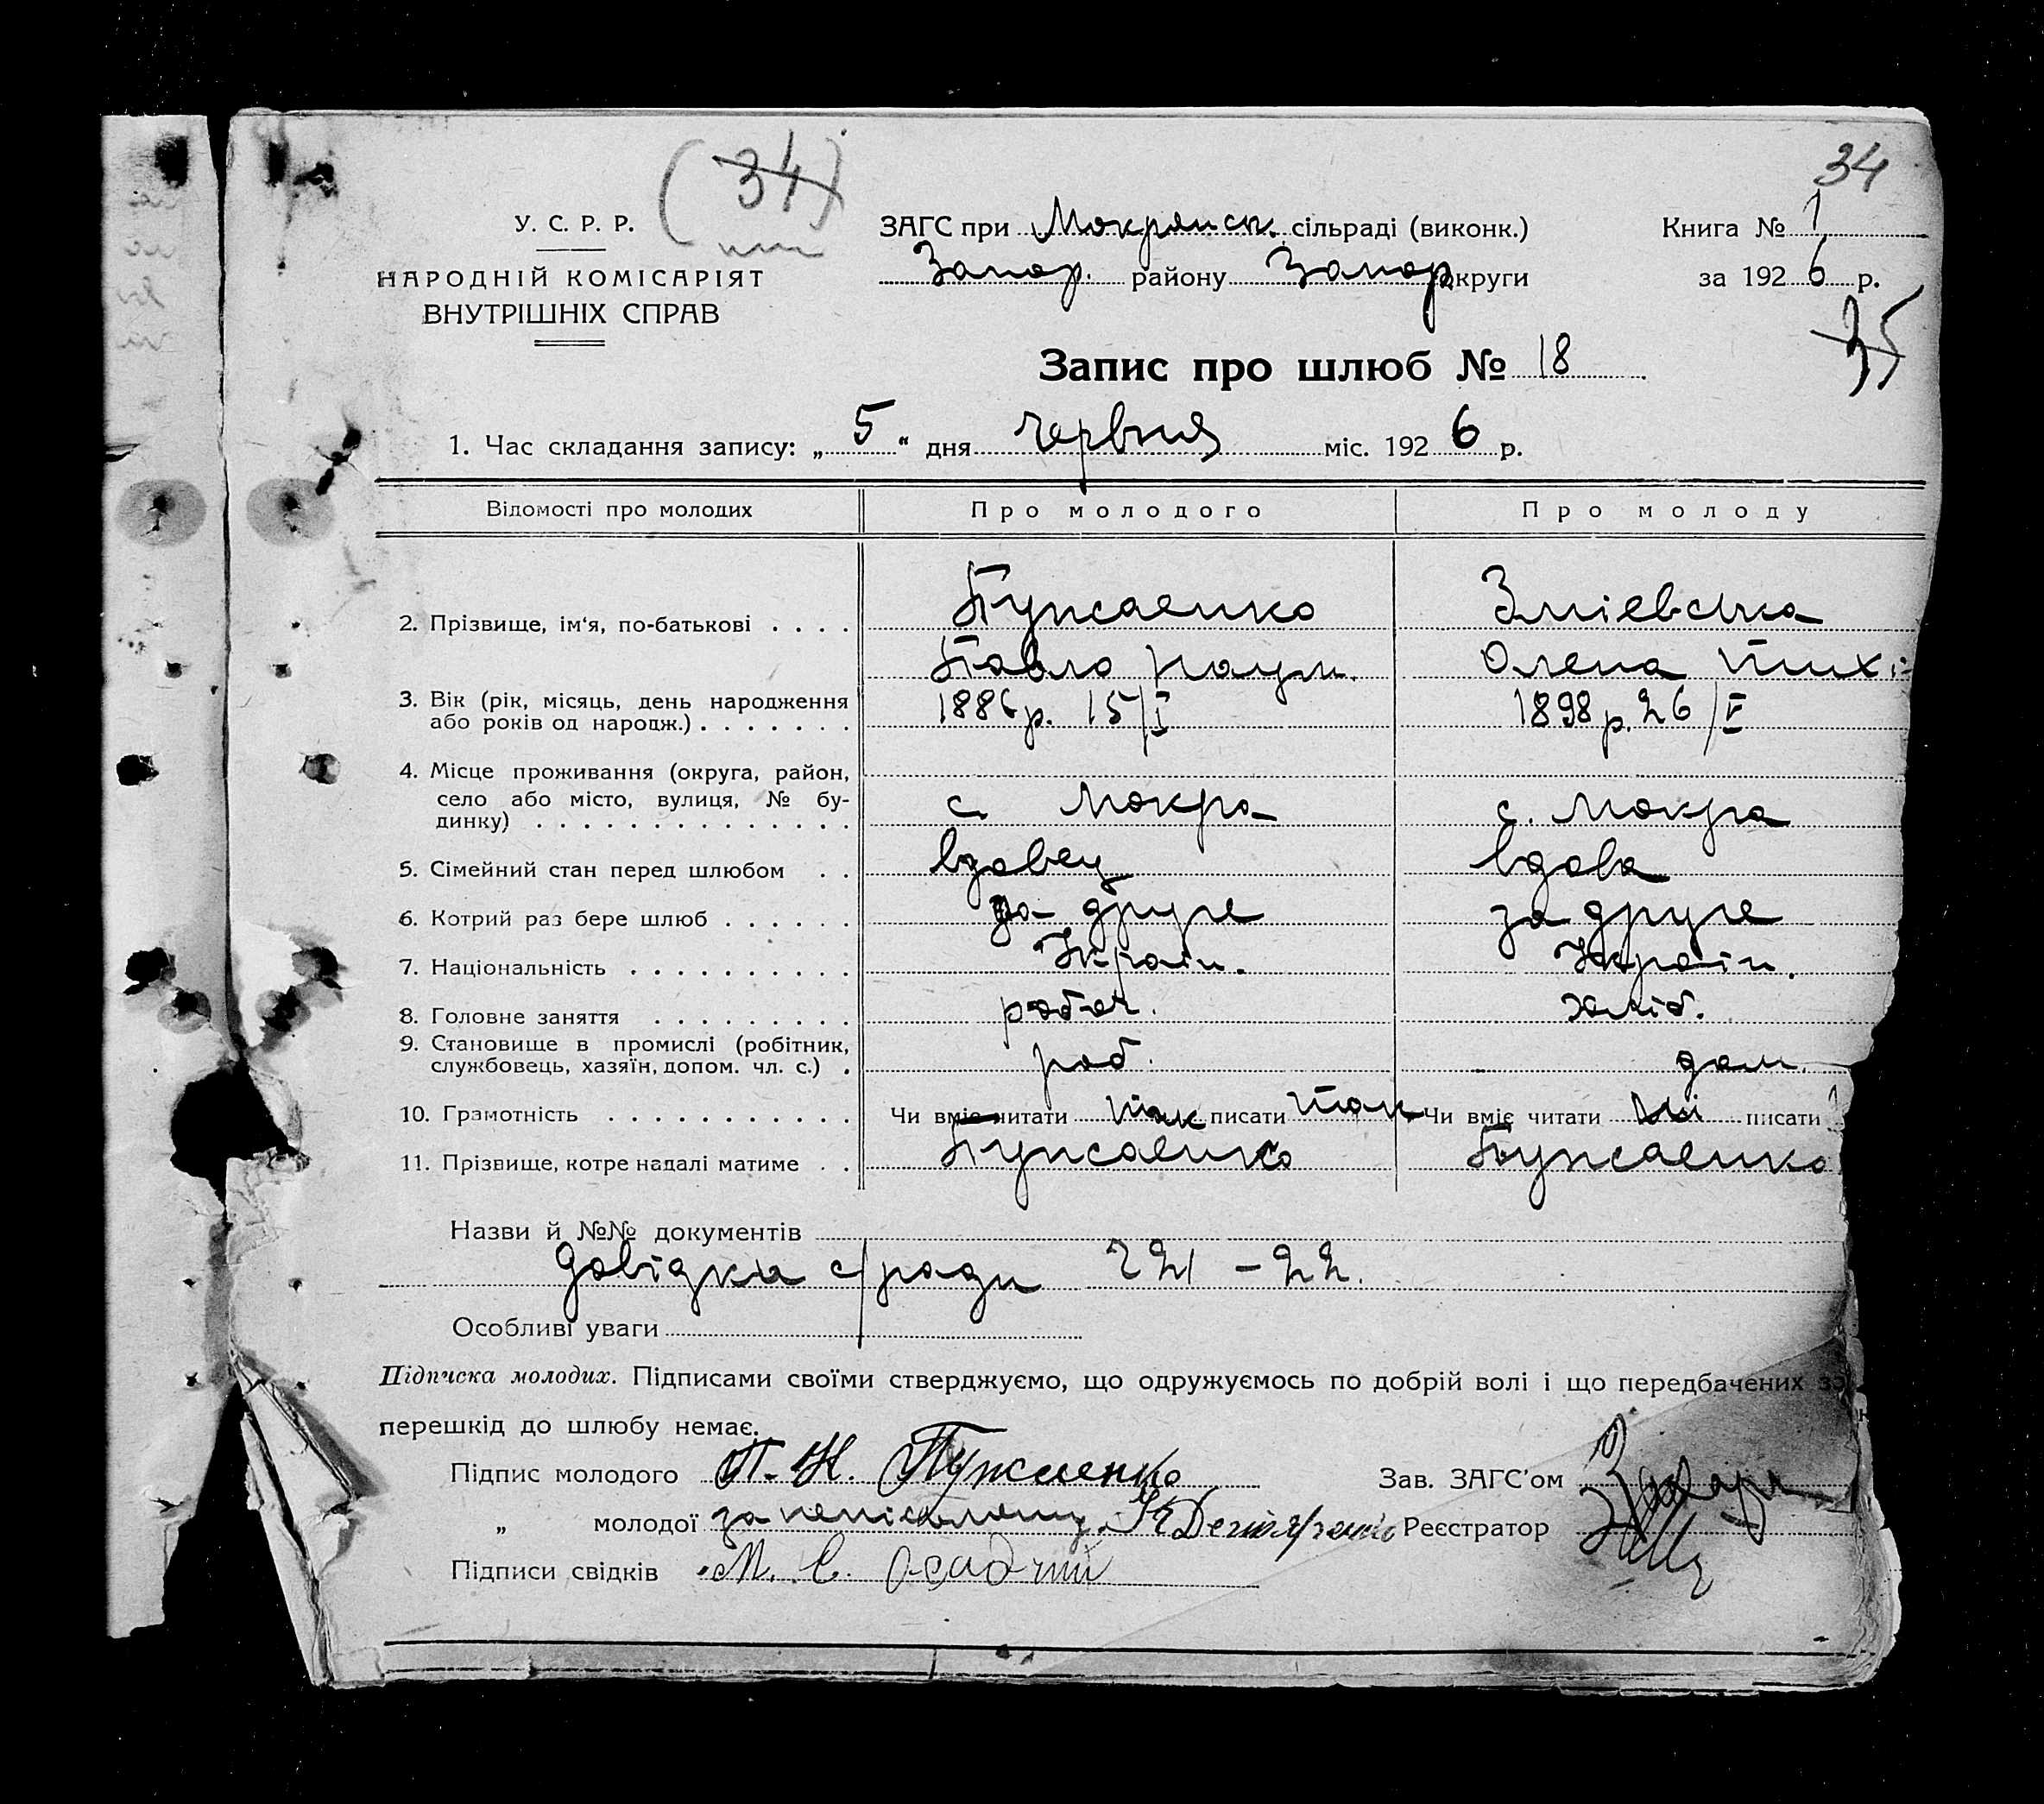 34
(34)
У. С. Р. Р.
НАРОДНІЙ КОМІСАРІЯТ
ВНУТРІШНІХ СПРАВ
ЗАГС при Мокрянск. сільраді (виконк.)
Запор. району Запор округи
Книга № 1
за 1926 р.
35
Запис про шлюб № 18
1. Час складання запису: „ 5 “ дня червня міс. 1926 р.
Відомості про молодих Про молодого Про молоду
2. Прізвище, ім‘я, по-батькові . . . . Пужаенко Змієвська
Павло Наум. Олена Тихі
3. Вік (рік, місяць, день народження 1886 р. 15/I 1898 р. 26/V
або років од народж.) . . . . . . .
4. Місце проживання (округа, район,
село або місто, вулиця, № бу- с. Мокра с. Мокра
динку) . . . . . . . . . . . . . . .
5. Сімейний стан перед шлюбом . . вдовец вдова
6. Котрий раз бере шлюб . . . . . . за друге за друге
7. Національність . . . . . . . . . . Україн. Україн.
8. Головне заняття . . . . . . . . . робоч. хліб.
9. Становище в промислі (робітник,
службовець, хазяїн, допом. чл. с.) . роб. дом.
10. Грамотність . . . . . . . . . . . Чи вміє читати так писати так Чи вміє читати ні писати
11. Прізвище, котре надалі матиме . . Пужаенко Пужаенко
Назви й №№ документів
Довідки с/ради 221 – 22.
Особливі уваги
Підписка молодих. Підписами своїми стверджуємо, що одружуємось по добрій волі і що передбачених за
перешкід до шлюбу немає.
Підпис молодого П. Н. Пужаенко Зав. ЗАГС’ом
„ молодої за неписьменну Дегтяренко Реєстратор
Підписи свідків М. С. Осадчий